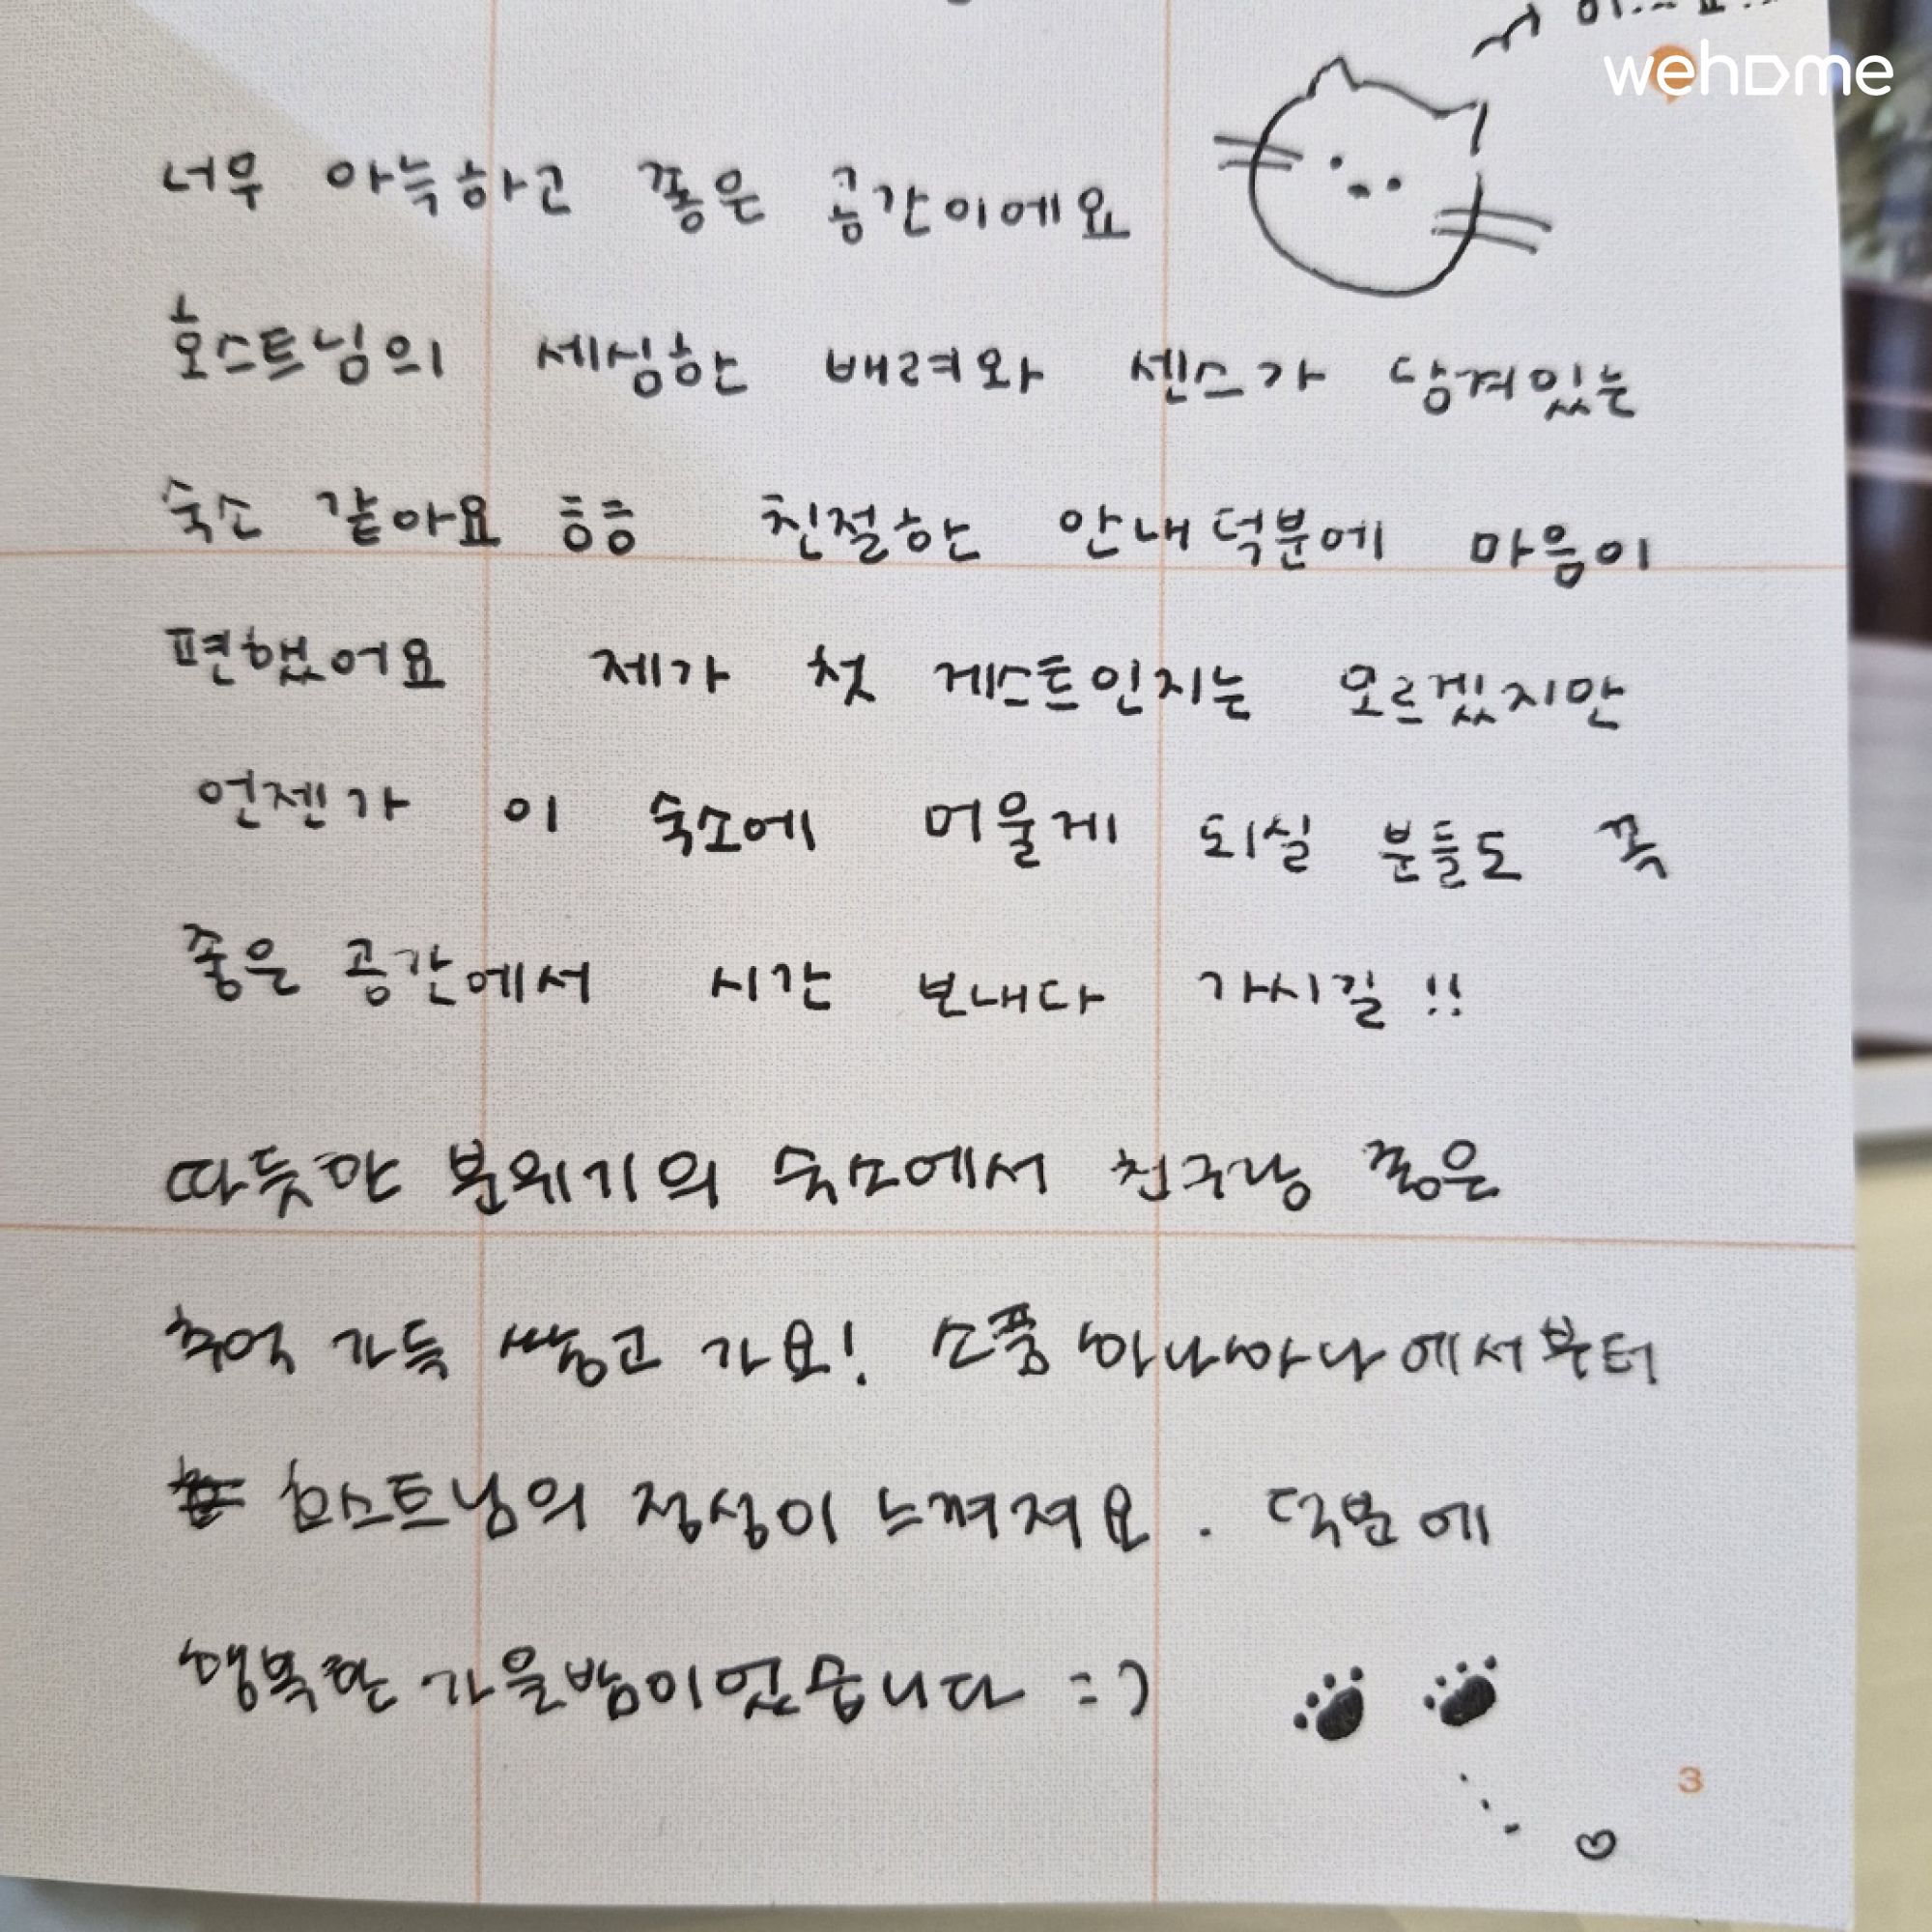 wehome
너무 아늑하고 좋은 공간이에요
호스트님의 세심한 배려와 센스가 담겨있는
숙소 같아요 흐흐 친절한 안내덕분에 마음이
편했어요 제가 첫 게스트인지는 모르겠지만
언젠가 이 숙소에 머울게 되실 분들도 꼭
좋은 공간에서 시간 보내다 가시길!!
따듯한 분위기의 숙소에서 친구랑 좋은
추억 가득 쌓고 가요! 소품 하나하나에서부터
호스트님의 정성이 느껴져요. 덕분에
행복한 가을밤이었습니다 :)
3